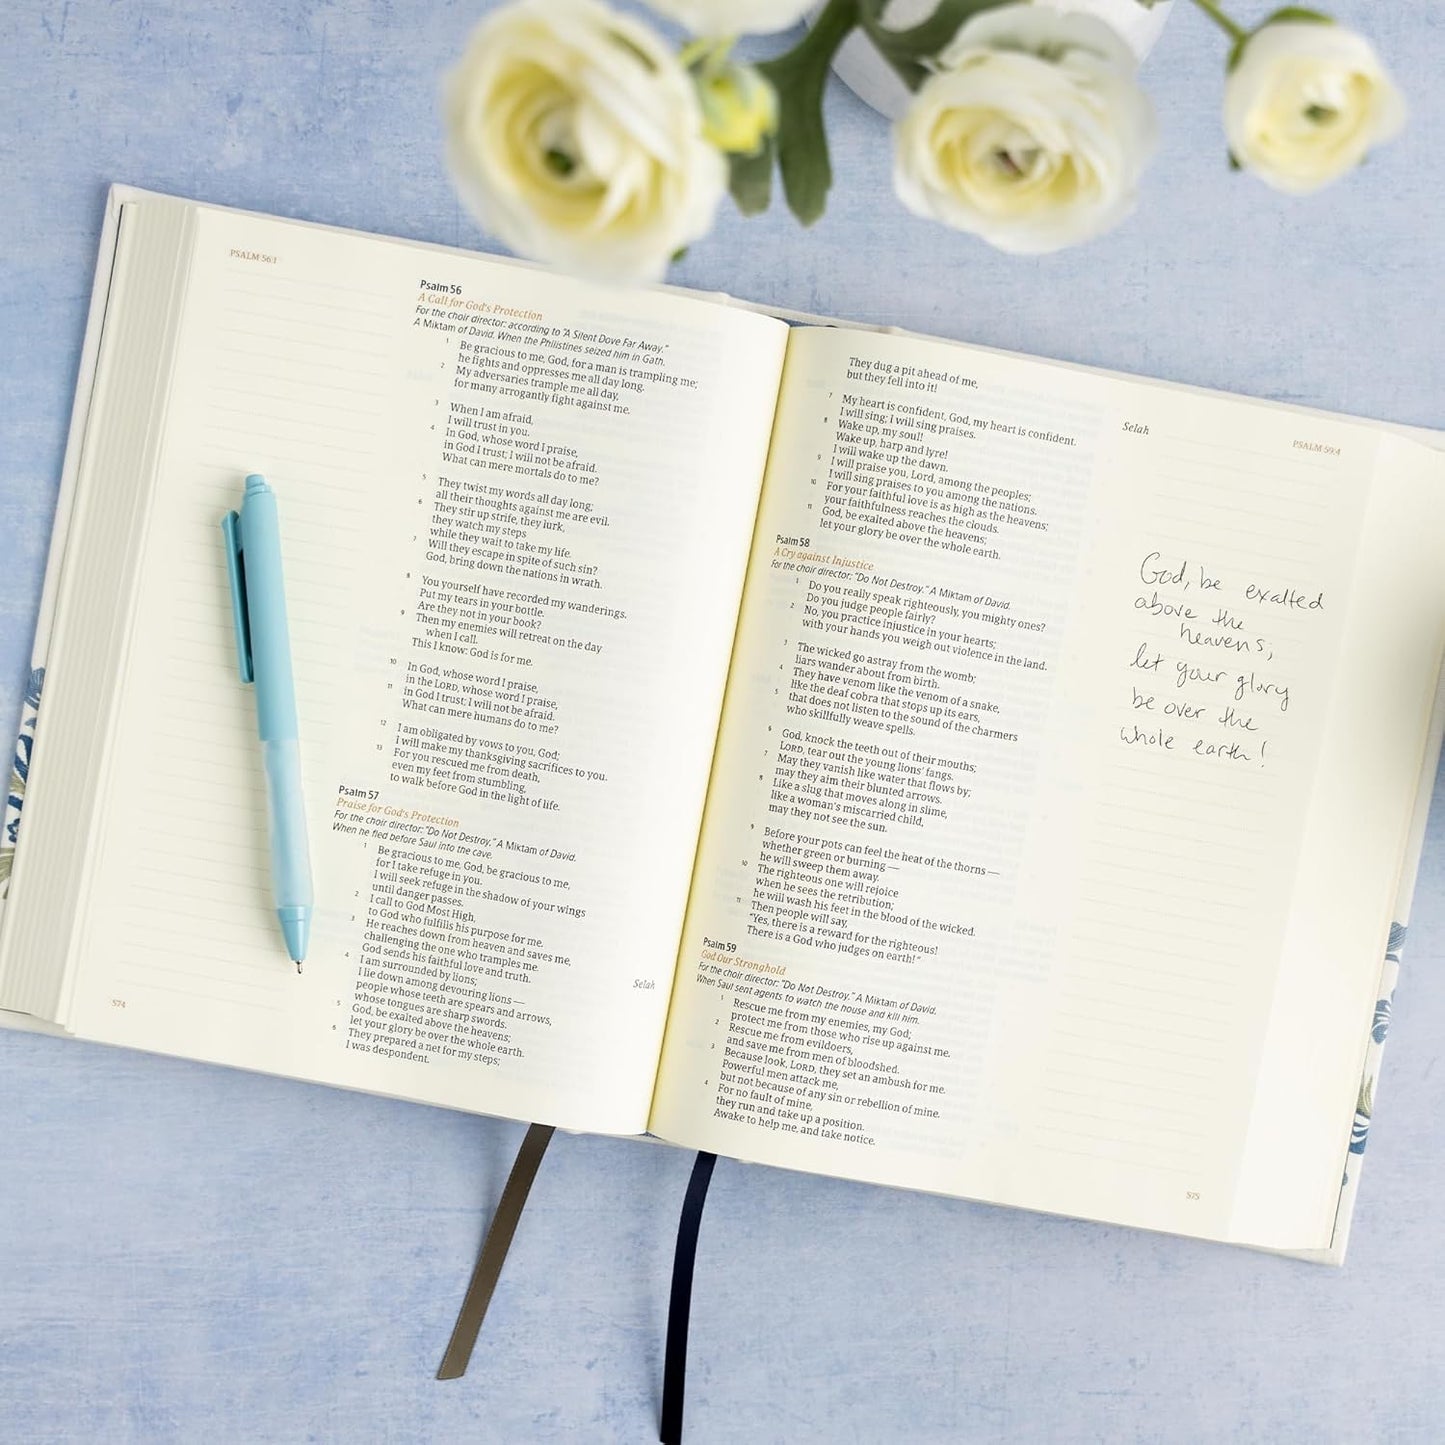 PSALM 56:1
Psalm 56
A Call for God's Protection
For the choir director: according to "A Silent Dove Far Away."
A Miktam of David. When the Philistines seized him in Gath.
1 Be gracious to me, God, for a man is trampling me;
he fights and oppresses me all day long.
2 My adversaries trample me all day,
for many arrogantly fight against me.
3 When I am afraid,
I will trust in you.
4 In God, whose word I praise,
in God I trust; I will not be afraid.
What can mere mortals do to me?
5 They twist my words all day long;
all their thoughts against me are evil.
6 They stir up strife, they lurk,
they watch my steps
while they wait to take my life.
7 Will they escape in spite of such sin?
God, bring down the nations in wrath.
8 You yourself have recorded my wanderings.
Put my tears in your bottle.
Are they not in your book?
9 Then my enemies will retreat on the day
when I call.
This I know: God is for me.
10 In God, whose word I praise,
in the LORD, whose word I praise,
11 in God I trust; I will not be afraid.
What can mere humans do to me?
12 I am obligated by vows to you, God;
I will make my thanksgiving sacrifices to you.
13 For you rescued me from death,
even my feet from stumbling,
to walk before God in the light of life.
Psalm 57
Praise for God's Protection
For the choir director: "Do Not Destroy." A Miktam of David.
When he fled before Saul into the cave.
1 Be gracious to me, God, be gracious to me,
for I take refuge in you.
I will seek refuge in the shadow of your wings
until danger passes.
2 I call to God Most High,
to God who fulfills his purpose for me.
3 He reaches down from heaven and saves me,
challenging the one who tramples me.
Selah
God sends his faithful love and truth.
4 I am surrounded by lions;
I lie down among devouring lions —
people whose teeth are spears and arrows,
whose tongues are sharp swords.
5 God, be exalted above the heavens;
let your glory be over the whole earth.
6 They prepared a net for my steps;
I was despondent.
574
They dug a pit ahead of me,
but they fell into it!
Selah
PSALM 59:4
7 My heart is confident, God, my heart is confident.
I will sing; I will sing praises.
8 Wake up, my soul!
Wake up, harp and lyre!
I will wake up the dawn.
9 I will praise you, Lord, among the peoples;
I will sing praises to you among the nations.
10 For your faithful love is as high as the heavens;
your faithfulness reaches the clouds.
11 God, be exalted above the heavens;
let your glory be over the whole earth.
Psalm 58
A Cry against Injustice
For the choir director: "Do Not Destroy." A Miktam of David.
1 Do you really speak righteously, you mighty ones?
Do you judge people fairly?
2 No, you practice injustice in your hearts;
with your hands you weigh out violence in the land.
3 The wicked go astray from the womb;
liars wander about from birth.
4 They have venom like the venom of a snake,
like the deaf cobra that stops up its ears,
5 that does not listen to the sound of the charmers
who skillfully weave spells.
6 God, knock the teeth out of their mouths;
LORD, tear out the young lions' fangs.
7 May they vanish like water that flows by;
may they aim their blunted arrows.
8 Like a slug that moves along in slime,
like a woman's miscarried child,
may they not see the sun.
9 Before your pots can feel the heat of the thorns —
whether green or burning —
he will sweep them away.
10 The righteous one will rejoice
when he sees the retribution;
he will wash his feet in the blood of the wicked.
11 Then people will say,
"Yes, there is a reward for the righteous!
There is a God who judges on earth!"
Psalm 59
God Our Stronghold
For the choir director: "Do Not Destroy." A Miktam of David.
When Saul sent agents to watch the house and kill him.
1 Rescue me from my enemies, my God;
protect me from those who rise up against me.
2 Rescue me from evildoers,
and save me from men of bloodshed.
3 Because look, LORD, they set an ambush for me.
Powerful men attack me,
but not because of any sin or rebellion of mine.
4 For no fault of mine,
they run and take up a position.
Awake to help me, and take notice.
575
God, be exalted
above the
heavens;
let your glory
be over the
whole earth!